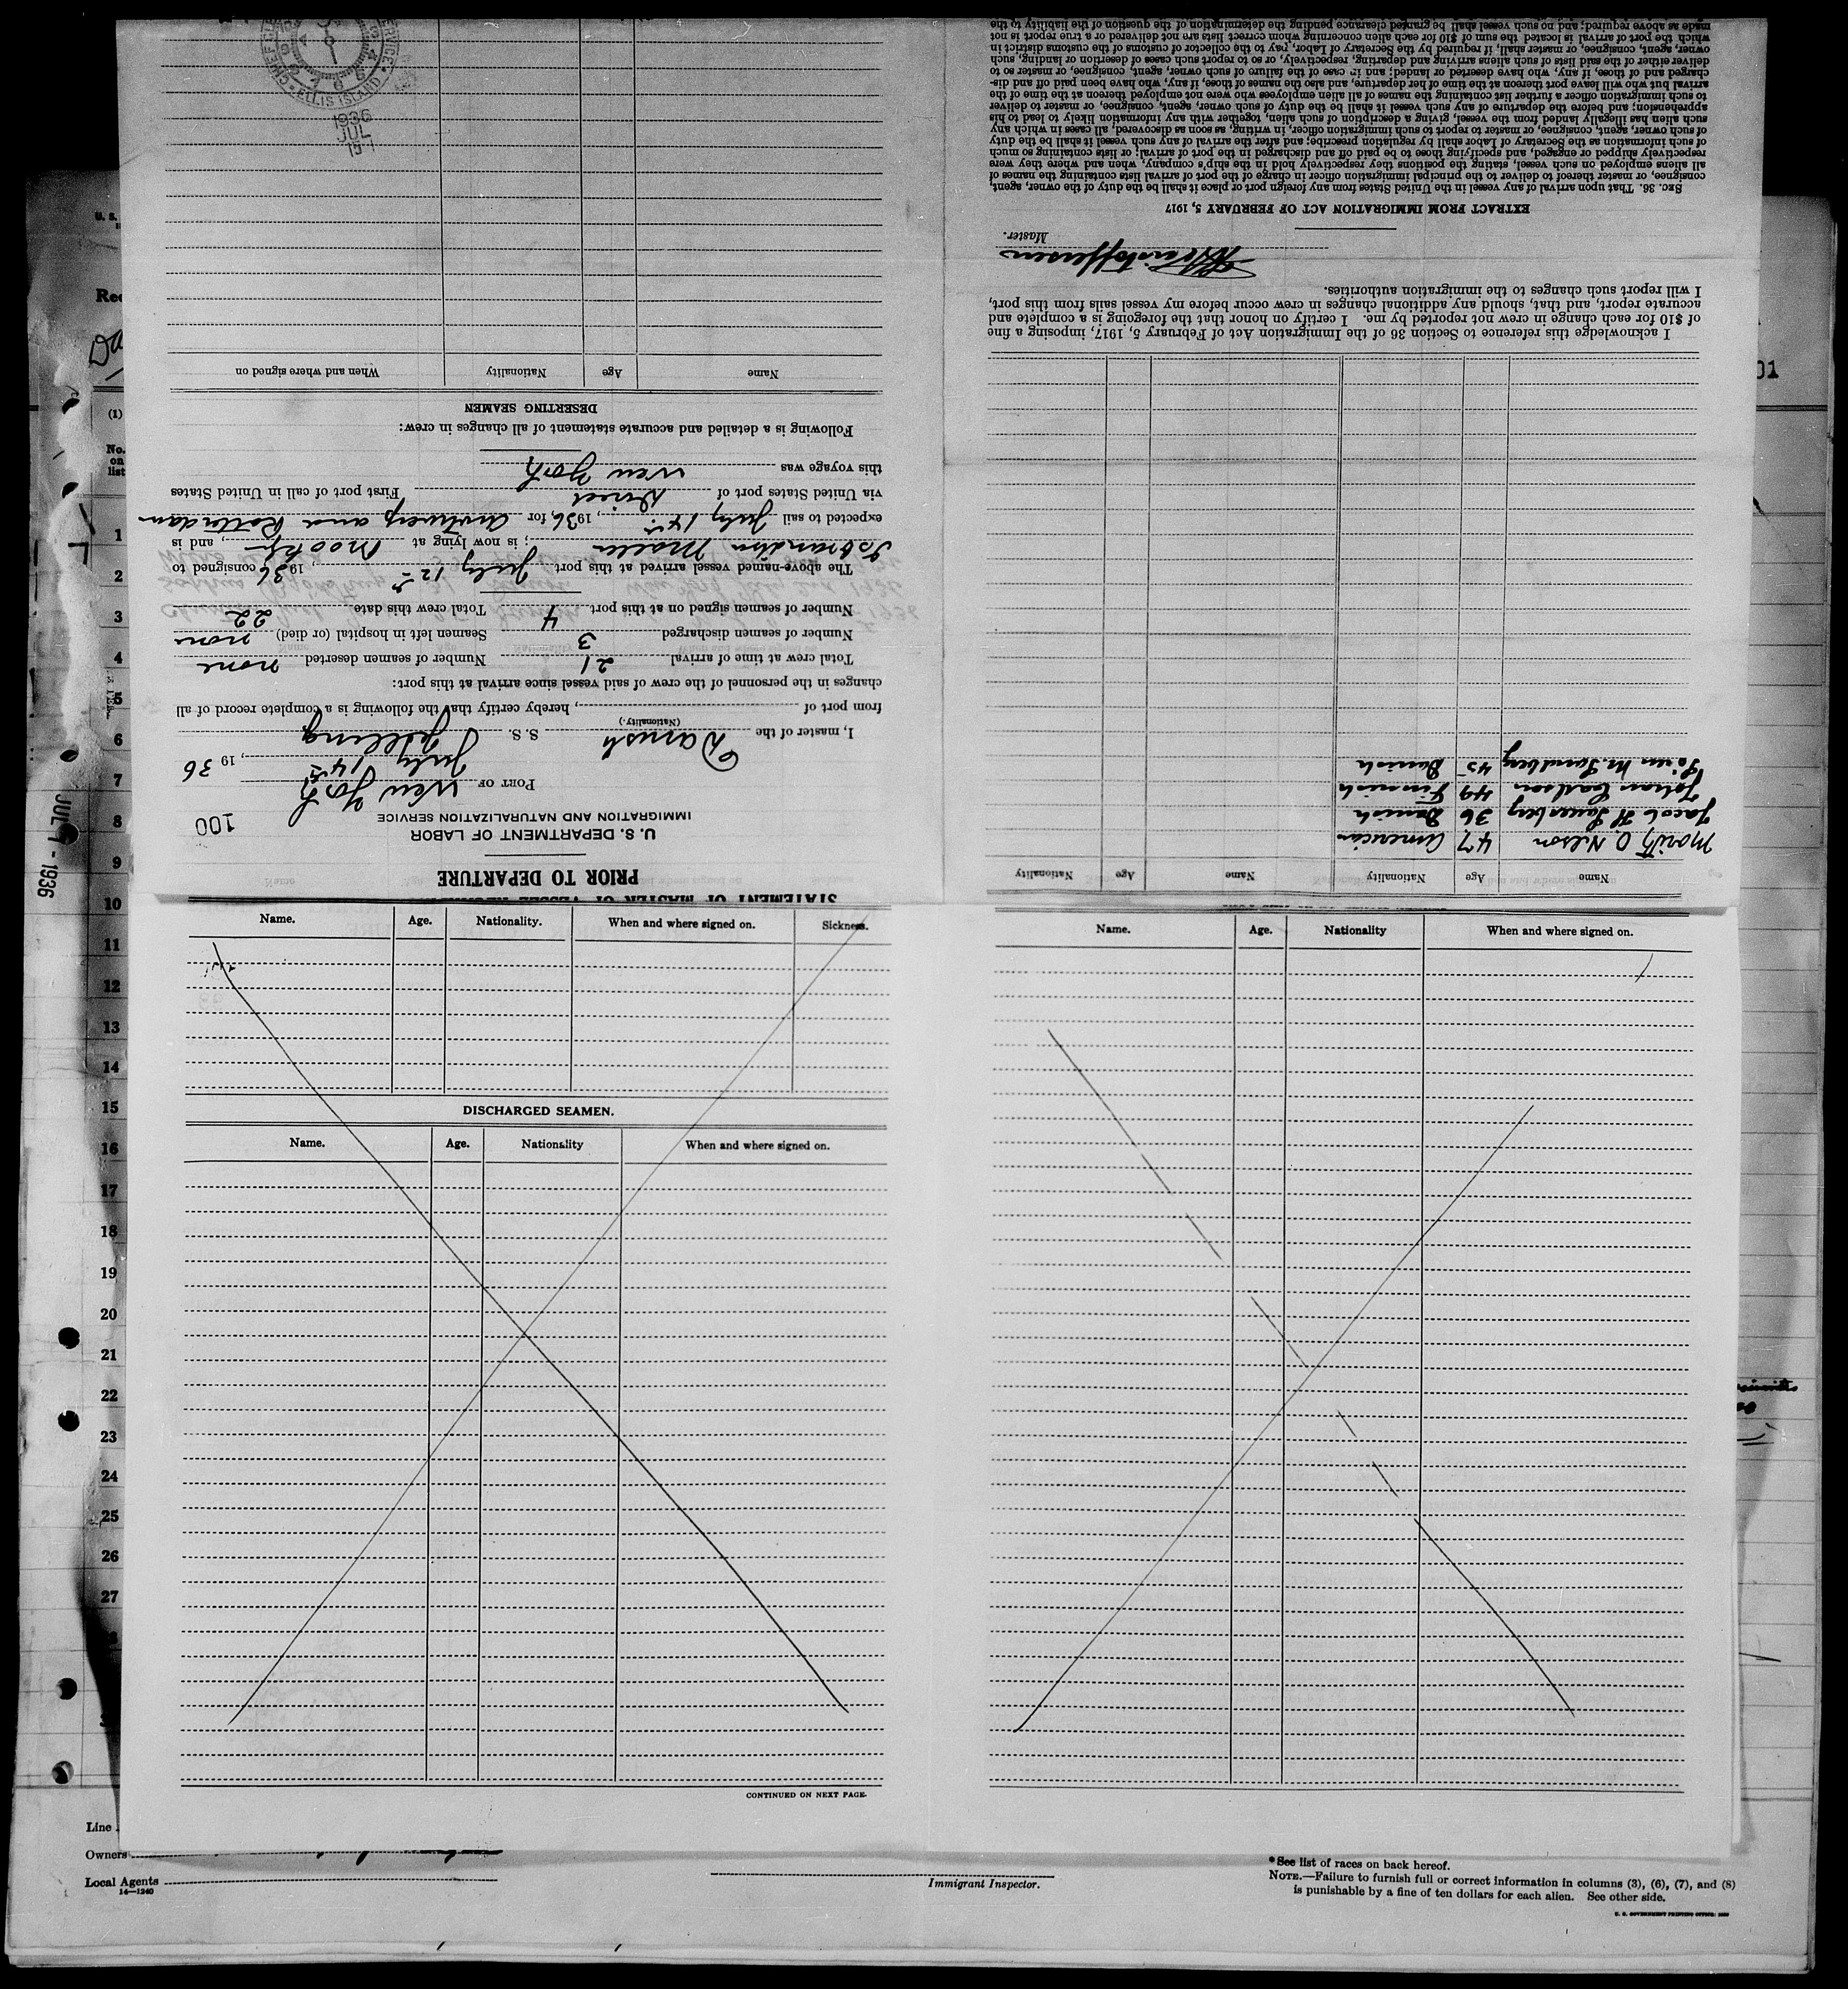 STATEMENT OF MASTER OF VESSEL
PRIOR TO DEPARTURE
U. S. DEPARTMENT OF LABOR
IMMIGRATION AND NATURALIZATION SERVICE
100
PORT OF New York
July 14th, 1936
I, master of the Danish S. S. Jelling
(Nationality.)
from port of , hereby certify that the following is a complete record of all
changes in the personnel of the crew of said vessel since arrival at this port:
Total crew at time of arrival 21 Number of seamen deserted none
Number of seamen discharged 3 Seamen left in hospital (or died) none
Number of seamen signed on at this port 4 Total crew this date 22
The above-named vessel arrived at this port July 12th, 1936 consigned to
Isbrandtsen Moller ; is now lying at Brooklyn, and is
expected to sail July 14th, 1936, for Antwerp and Rotterdam
via United States port of Direct First port of call in United States
this voyage was New York
Following is a detailed and accurate statement of all changes in crew:
DESERTING SEAMEN
Name Age Nationality When and where signed on
ELLIS ISLAND
1936
JUL
15
Name Age Nationality Name Age Nationality
Moritz O. Nilson 47 American
Jacob H Sauerberg 36 Danish
Johan Carlson 49 Finnish
Sören M. Sandberg 45 Danish
I acknowledge this reference to Section 36 of the Immigration Act of February 5, 1917, imposing a fine
of $10 for each change in crew not reported by me. I certify on honor that the foregoing is a complete and
accurate report, and that, should any additional changes in crew occur before my vessel sails from this port,
I will report such changes to the immigration authorities.
Christoffersen
Master.
EXTRACT FROM IMMIGRATION ACT OF FEBRUARY 5, 1917
SEC. 36. That upon arrival of any vessel in the United States from any foreign port or place it shall be the duty of the owner, agent,
consignee, or master thereof to deliver to the principal immigration officer in charge of the port of arrival lists containing the names of
all aliens employed on such vessel, stating the positions they respectively hold in the ship's company, when and where they were
respectively shipped or engaged, and specifying those to be paid off and discharged in the port of arrival; or lists containing so much
of such information as the Secretary of Labor shall by regulation prescribe; and after the arrival of any such vessel it shall be the duty
of such owner, agent, consignee, or master to report to such immigration officer, in writing, as soon as discovered, all cases in which any
such alien has illegally landed from the vessel, giving a description of such alien, together with any information likely to lead to his
apprehension; and before the departure of any such vessel it shall be the duty of such owner, agent, consignee, or master to deliver
to such immigration officer a further list containing the names of all alien employees who were not employed thereon at the time of the
arrival but who will leave port thereon at the time of her departure, and also the names of those, if any, who have been paid off and dis-
charged and of those, if any, who have deserted or landed; and in case of the failure of such owner, agent, consignee, or master so to
deliver either of the said lists of such aliens arriving and departing, respectively, or so to report such cases of desertion or landing, such
owner, agent, consignee, or master, shall, if required by the Secretary of Labor, pay to the collector of customs of the customs district in
which the port of arrival is located the sum of $10 for each alien concerning whom correct lists are not delivered or a true report is not
made as above required; and no such vessel shall be granted clearance pending the determination of the question of the liability to the
Name. Age. Nationality. When and where signed on. Sickness.
DISCHARGED SEAMEN.
Name. Age. Nationality When and where signed on.
CONTINUED ON NEXT PAGE.
Name. Age. Nationality When and where signed on.
U. S.
(1)
No.
on
list
1
2
3
4
5
6
7
8
9
10
11
12
13
14
15
16
17
18
19
20
21
22
23
24
25
26
27
JUL 1 - 1936
01
Line
Owners
Local Agents
14—1240
Immigrant Inspector.
* See list of races on back hereof.
NOTE.—Failure to furnish full or correct information in columns (3), (6), (7), and (8)
is punishable by a fine of ten dollars for each alien. See other side.